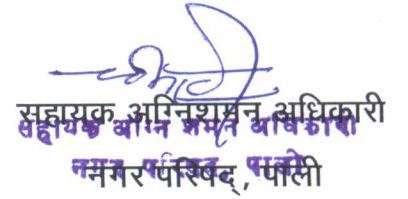 सहायक अग्निशमन अधिकारी
सहायक अग्नि शमन अधिकारी
नगर परिषद्, पाली
नगर परिषद, पाली